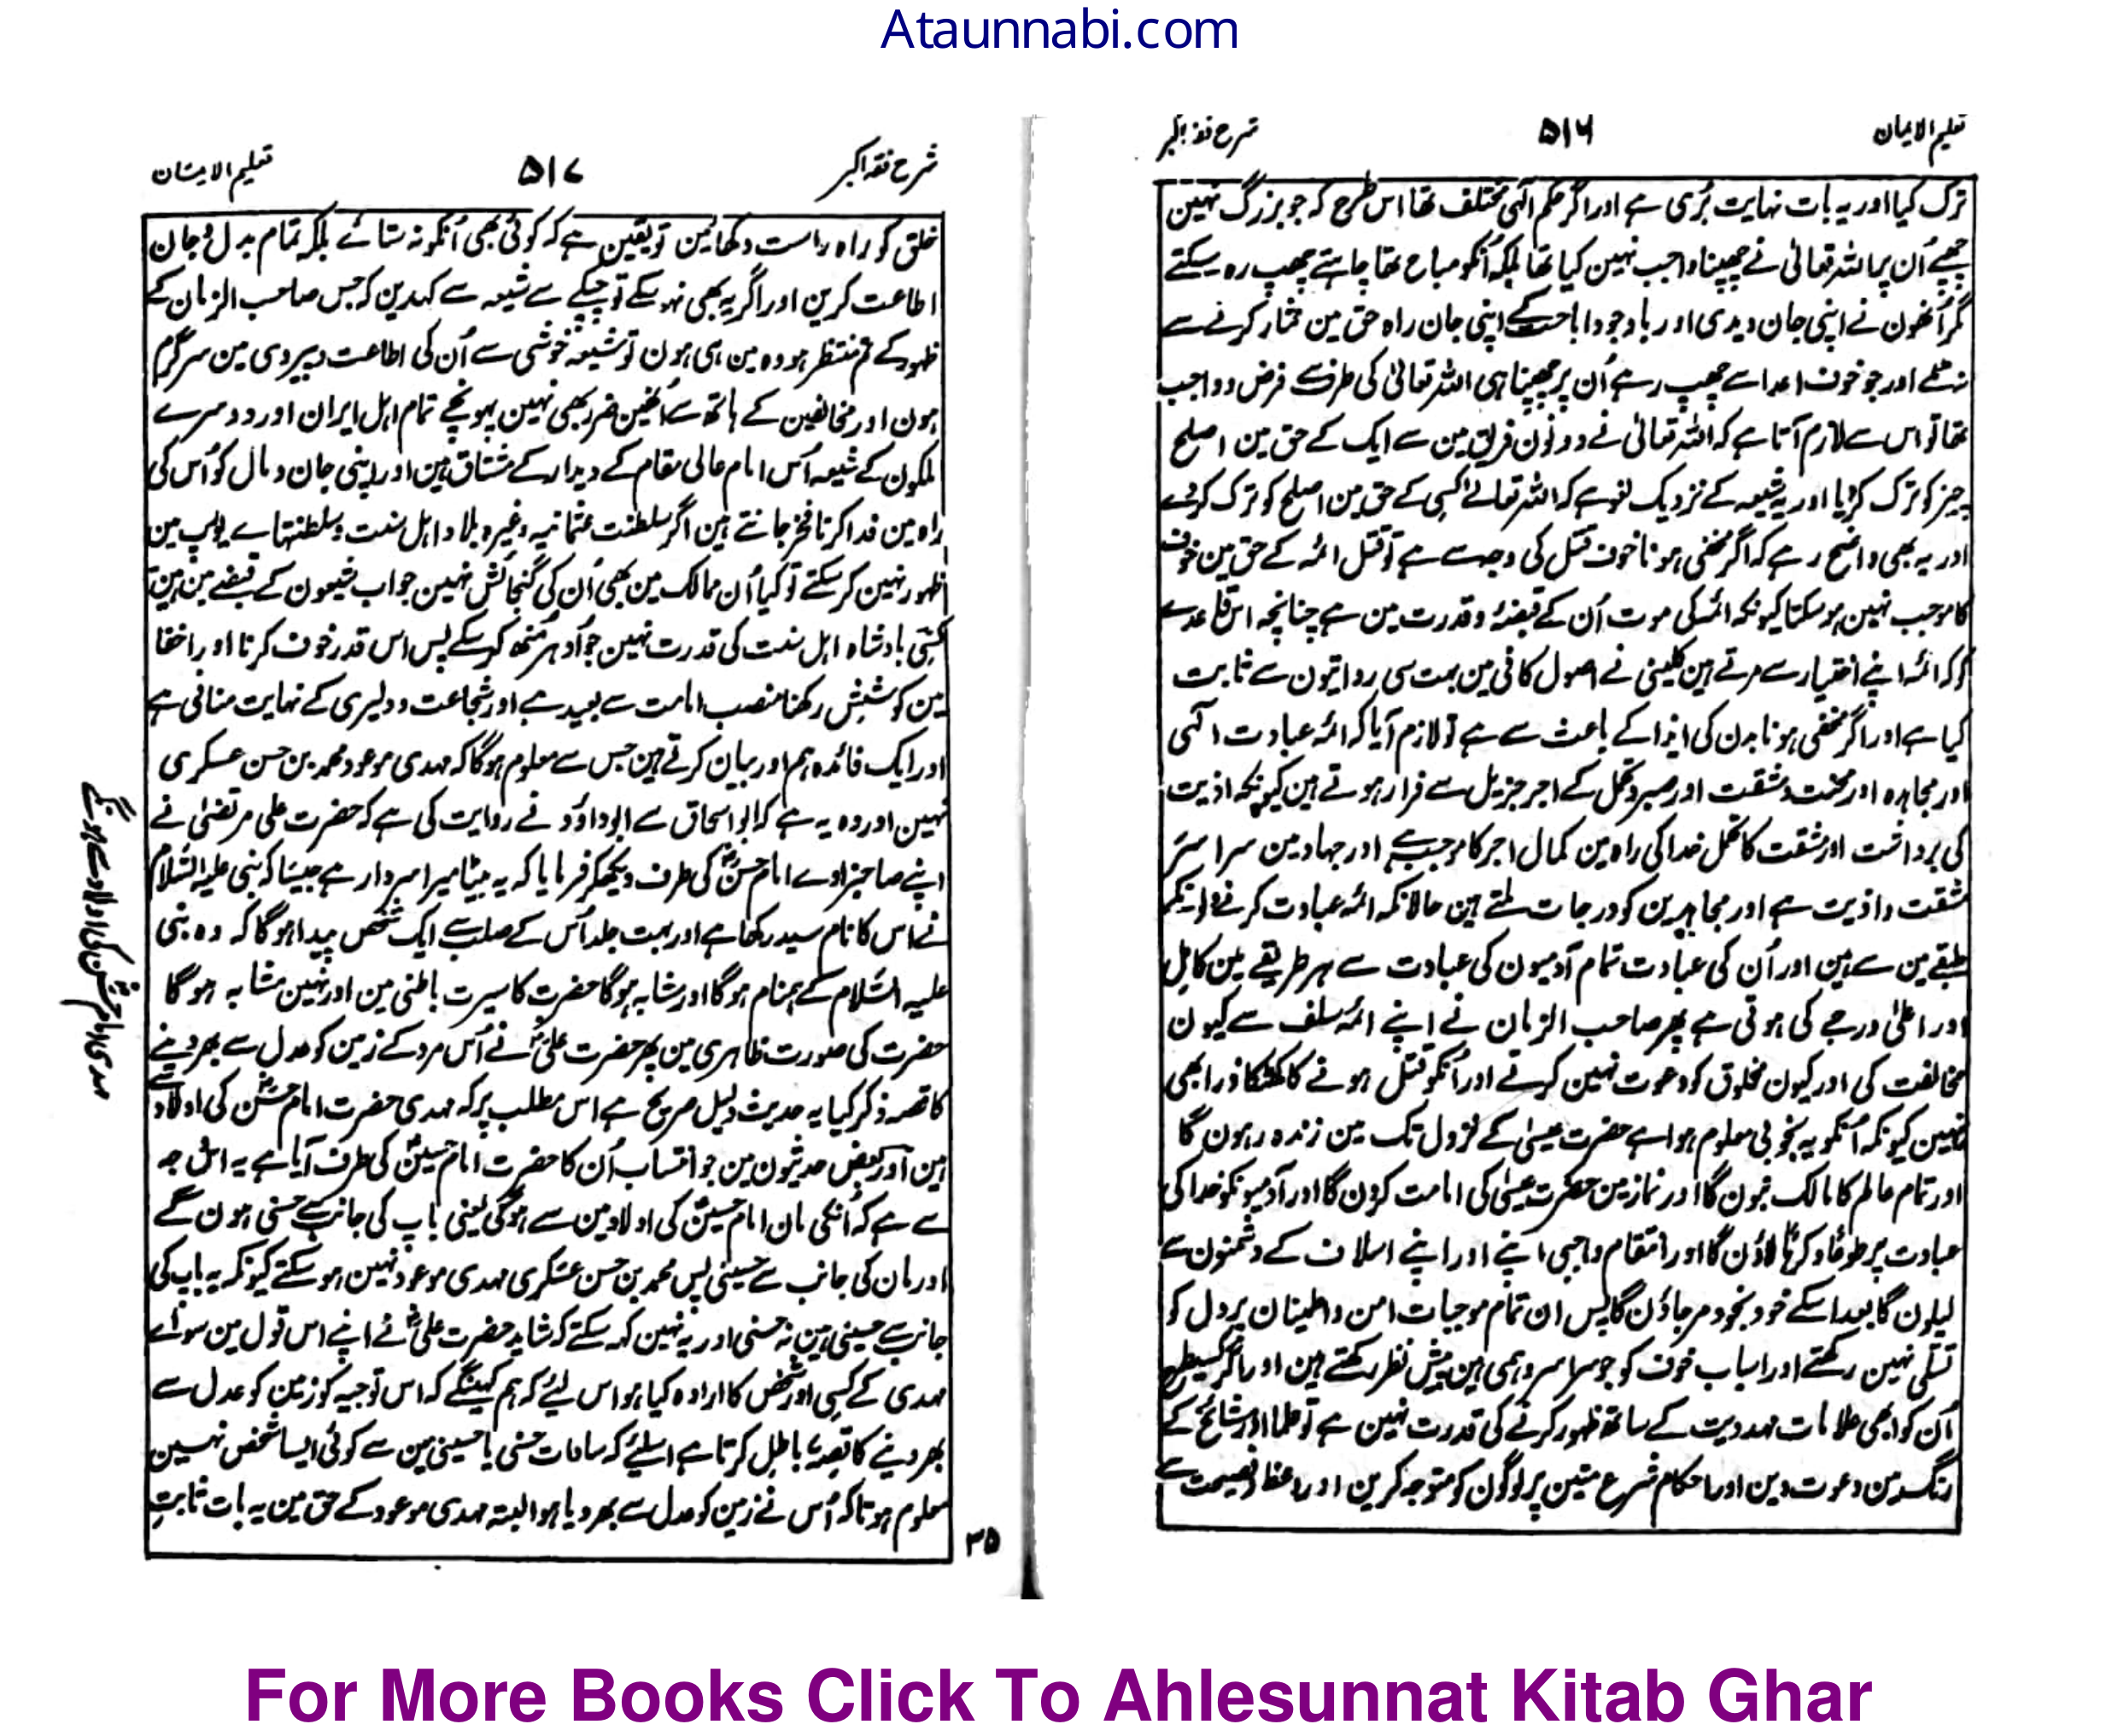 Ataunnabi.com
تعلیم الایمان ۵۱۶ شرح فقہ اکبر
ترک کیا اور یہ بات نہایت بُری ہے اور اگر حکم الٰہی مختلف تھا اس طرح کہ جو بزرگ نہین
چھپے اُن پر اللہ تعالیٰ نے چھپنا واجب نہین کیا تھا بلکہ اُنکو مباح تھا چاہتے چھپ رہ سکتے
مگر اُنھون نے اپنی جان دیدی اور باوجود اباحت کے اپنی جان راہ حق مین نثار کرنے سے
نہ ٹلے اور جو خوف اعدا سے چھپ رہے اُن پر چھپنا ہی اللہ تعالیٰ کی طرف سے فرض و واجب
تھا تو اس سے لازم آتا ہے کہ اللہ تعالیٰ نے دونون فریق مین سے ایک کے حق مین اصلح
چیز کو ترک کردیا اور یہ شیعہ کے نزدیک لغو ہے کہ اللہ تعالےٰ کسی کے حق مین اصلح کو ترک کردے
اور یہ بھی واضح رہے کہ اگر مخفی ہونا خوف قتل کی وجہ سے ہے تو قتل ائمہ کے حق مین خوف
کا موجب نہین ہو سکتا کیونکہ ائمہ کی موت اُن کے قبضۂ و قدرت مین ہے چنانچہ اس قاعدے
کو کہ ائمہ اپنے اختیار سے مرتے ہین کلینی نے اصول کافی مین بہت سی روایتون سے ثابت
کیا ہے اور اگر مخفی ہونا بدن کی ایذا کے باعث سے ہے تو لازم آیا کہ ائمہ عبادت الٰہی
اور مجاہدہ اور محنت و مشقت اور صبر و تحمل کے اجر جزیل سے فرار ہوتے ہین کیونکہ اذیت
کی برداشت اور مشقت کا تحمل خدا کی راہ مین کمال اجر کا موجب ہے اور جہاد مین سراسر
مشقت و اذیت ہے اور مجاہدین کو درجات ملتے ہین حالانکہ ائمہ عبادت کرنے والونکے
طبقے مین سے ہین اور اُن کی عبادت تمام آدمیون کی عبادت سے ہر طریقے مین کامل
اور اعلیٰ درجے کی ہوتی ہے پھر صاحب الزمان نے اپنے ائمہ سلف سے کیون
مخالفت کی اور کیون مخلوق کو دعوت نہین کرتے اور اُنکو قتل ہونے کا کھٹکا ذرا بھی
نہین کیونکہ اُنکو یہ بخوبی معلوم ہوا ہے حضرت عیسیٰ کے نزول تک مین زندہ رہون گا
اور تمام عالم کا مالک بنون گا اور نماز مین حضرت عیسیٰ کی امامت کرون گا اور آدمیونکو خدا کی
عبادت پر طوعًا و کرہًا لاؤن گا اور انتقام واجبی اپنے اور اپنے اسلاف کے دشمنون سے
لیلون گا بعد اسکے خود بخود مرجاؤن گا پس ان تمام موجبات امن و اطمینان پر دل کو
تسلی نہین رکھتے اور اسباب خوف کو جو سراسر وہمی ہین پیش نظر رکھتے ہین اور اگر کسیطرح
اُن کو ابھی علامات مہدویت کے ساتھ ظہور کرنے کی قدرت نہین ہے تو علما اور مشائخ کے
رنگ مین دعوت دین اور احکام شرع متین پر لوگون کو متوجہ کرین اور وعظ و نصیحت سے
شرح فقہ اکبر ۵۱۷ تعلیم الایمان
خلق کو راہ راست دکھائین تو یقین ہے کہ کوئی بھی اُنکو نہ ستائے بلکہ تمام بدل و جان
اطاعت کرین اور اگر یہ بھی نہو سکے تو چپکے سے شیعہ سے کہدین کہ جس صاحب الزمان کے
ظہور کے تم منتظر ہو وہ مین ہی ہون تو شیعہ خوشی سے اُن کی اطاعت و پیروی مین سرگرم
ہون اور مخالفین کے ہاتھ سے اُنھین ضرر بھی نہین پہونچے تمام اہل ایران اور دوسرے
ملکون کے شیعہ اُس امام عالی مقام کے دیدار کے مشتاق ہین اور اپنی جان و مال کو اُس کی
راہ مین فدا کرنا فخر جانتے ہین اگر سلطنت عثمانیہ وغیرہ بلاد اہل سنت و سلطنتہاے یورپ مین
ظہور نہین کر سکتے تو کیا اُن ممالک مین بھی اُن کی گنجائش نہین جو اب شیعون کے قبضے مین ہین
کسی بادشاہ اہل سنت کی قدرت نہین جو اُدہر مُنھ کر سکے پس اس قدر خوف کرنا اور اخفا
مین کوشش رکھنا منصب امامت سے بعید ہے اور شجاعت و دلیری کے نہایت منافی ہے
اور ایک فائدہ ہم اور بیان کرتے ہین جس سے معلوم ہوگا کہ مہدی موعود محمد بن حسن عسکری
نہین اور وہ یہ ہے کہ ابو اسحاق سے ابو داؤد نے روایت کی ہے کہ حضرت علی مرتضیٰ نے
اپنے صاحبزادے امام حسنؓ کی طرف دیکھکر فرمایا کہ یہ بیٹا میرا سردار ہے جیسا کہ نبی علیہ السلام
نے اس کا نام سید رکھا ہے اور بہت جلد اُس کے صلب سے ایک شخص پیدا ہوگا کہ وہ نبی
علیہ السلام کے ہمنام ہوگا اور مشابہ ہوگا حضرت کا سیرت باطنی مین اور نہین مشابہ ہوگا
حضرت کی صورت ظاہری مین پھر حضرت علیؓ نے اُس مرد کے زمین کو عدل سے بھر دینے
کا قصہ ذکر کیا یہ حدیث دلیل صریح ہے اس مطلب پر کہ مہدی حضرت امام حسنؓ کی اولاد سے
ہین اور بعض حدیثون مین جو انتساب اُن کا حضرت امام حسینؓ کی طرف آیا ہے یہ اس وجہ
سے ہے کہ اُنکی مان امام حسینؓ کی اولاد مین سے ہوگی یعنی باپ کی جانب سے حسنی ہون گے
اور مان کی جانب سے حسینی پس محمد بن حسن عسکری مہدی موعود نہین ہو سکتے کیونکہ یہ باپ کی
جانب سے حسینی ہین نہ حسنی اور یہ نہین کہہ سکتے کہ شاید حضرت علیؓ نے اپنے اس قول مین سواے
مہدی کے کسی اور شخص کا ارادہ کیا ہو اس لیے کہ ہم کہینگے کہ اس توجیہ کو زمین کو عدل سے
بھر دینے کا قصہ باطل کرتا ہے اسلیے کہ سادات حسنی یا حسینی مین سے کوئی ایسا شخص نہین
معلوم ہوتا کہ اُس نے زمین کو عدل سے بھر دیا ہو البتہ مہدی موعود کے حق مین یہ بات ثابت
۳۵
مہدی امام حسنؓ کی اولاد سے ہونگے
For More Books Click To Ahlesunnat Kitab Ghar